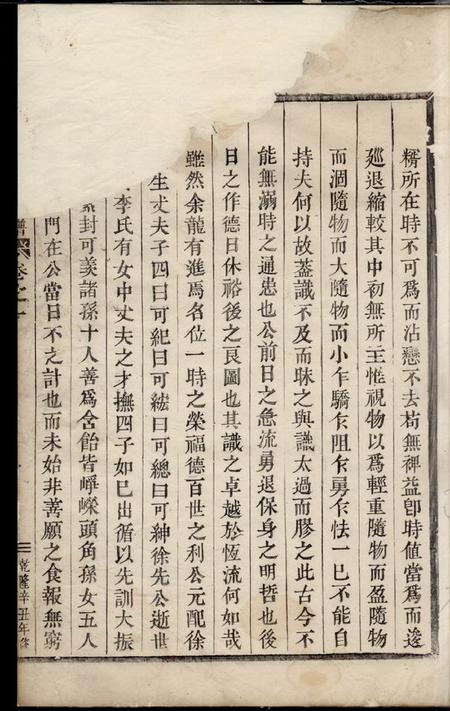 糈所在時不可為而沾戀不去苟無裨益卽時值當為而逡
廵退縮較其中初無所主惟視物以為輕重隨物而盈隨物
而涸隨物而大隨物而小乍驕乍阻乍勇乍怯一已不能自
持夫何以故葢識不及而昧之與識太過而膠之此古今不
能無溺時之通患也公前日之急流勇退保身之明哲也後
日之作德日休裕後之良圖也其識之卓越於恆流何如哉
雖然余龍有進焉名位一時之榮福德百世之利公元配徐
生丈夫子四曰可紀曰可綋曰可總曰可紳徐先公逝世
李氏有女中丈夫之才撫四子如已出循以先訓大振
封可羨諸孫十人善爲含飴皆崢嶸頭角孫女五人
門在公當日不之計也而未始非善願之食報無窮
譜 卷之一
乾隆辛丑年修